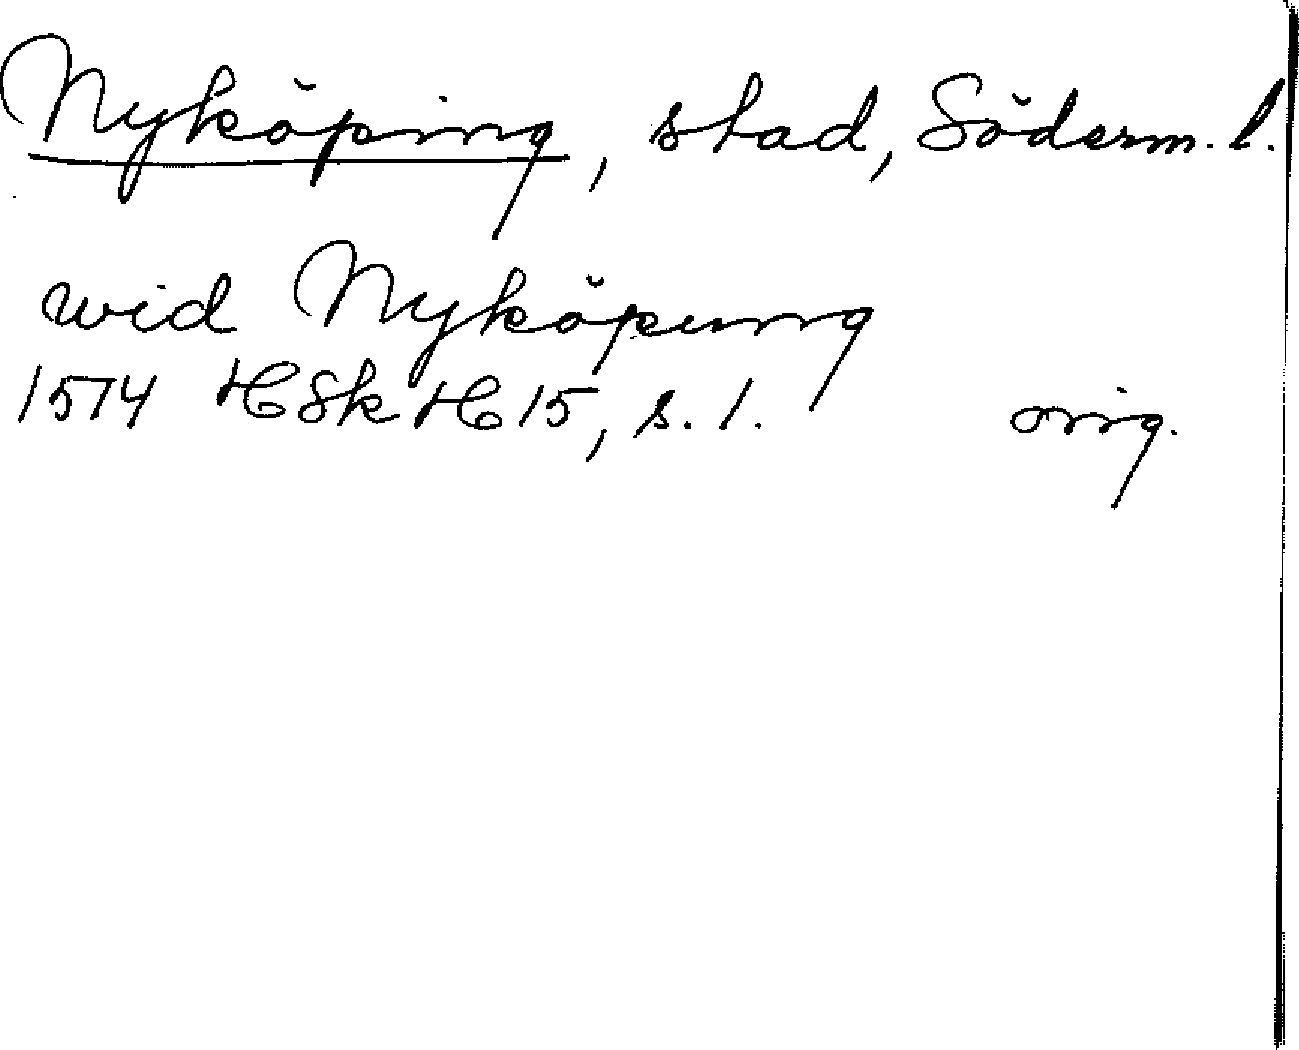 Nyköping, stad, Söderm. l.
wid Nyköpung
1574 HSk H15, s. 1. orig.